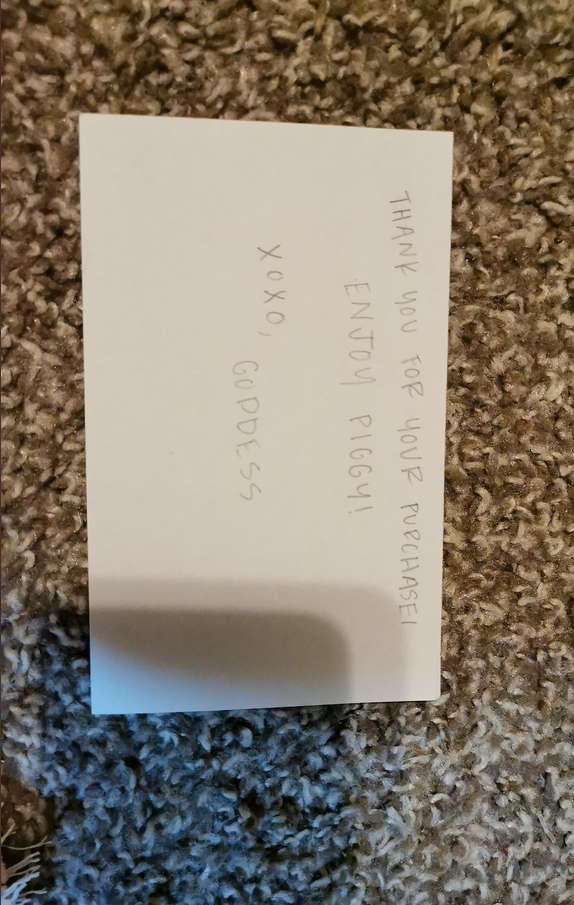 THANK YOU FOR YOUR PURCHASE!
ENJOY PIGGY!
XOXO,
GODDESS